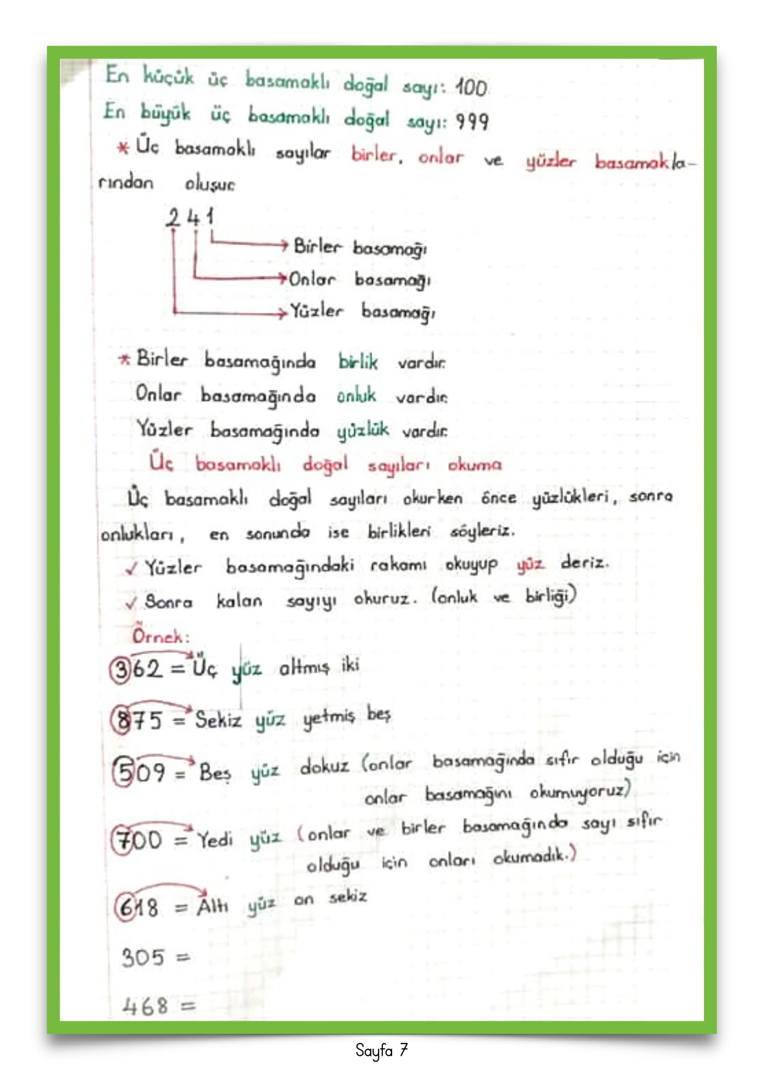 En küçük üç basamaklı doğal sayı: 100
En büyük üç basamaklı doğal sayı: 999
* Üç basamaklı sayılar birler, onlar ve yüzler basamakla-
rından oluşur
241
Birler basamağı
Onlar basamağı
Yüzler basamağı
* Birler basamağında birlik vardır.
Onlar basamağında onluk vardır.
Yüzler basamağında yüzlük vardır.
Üç basamaklı doğal sayıları okuma
Üç basamaklı doğal sayıları okurken önce yüzlükleri, sonra
onlukları, en sonunda ise birlikleri söyleriz.
✓ Yüzler basamağındaki rakamı okuyup yüz deriz.
✓ Sonra kalan sayıyı okuruz. (onluk ve birliği)
Örnek:
362 = Üç yüz altmış iki
875 = Sekiz yüz yetmiş beş
509 = Beş yüz dokuz (onlar basamağında sıfır olduğu için
onlar basamağını okumuyoruz)
700 = Yedi yüz (onlar ve birler basamağında sayı sıfır
olduğu için onları okumadık.)
618 = Altı yüz on sekiz
305 =
468 =
Sayfa 7